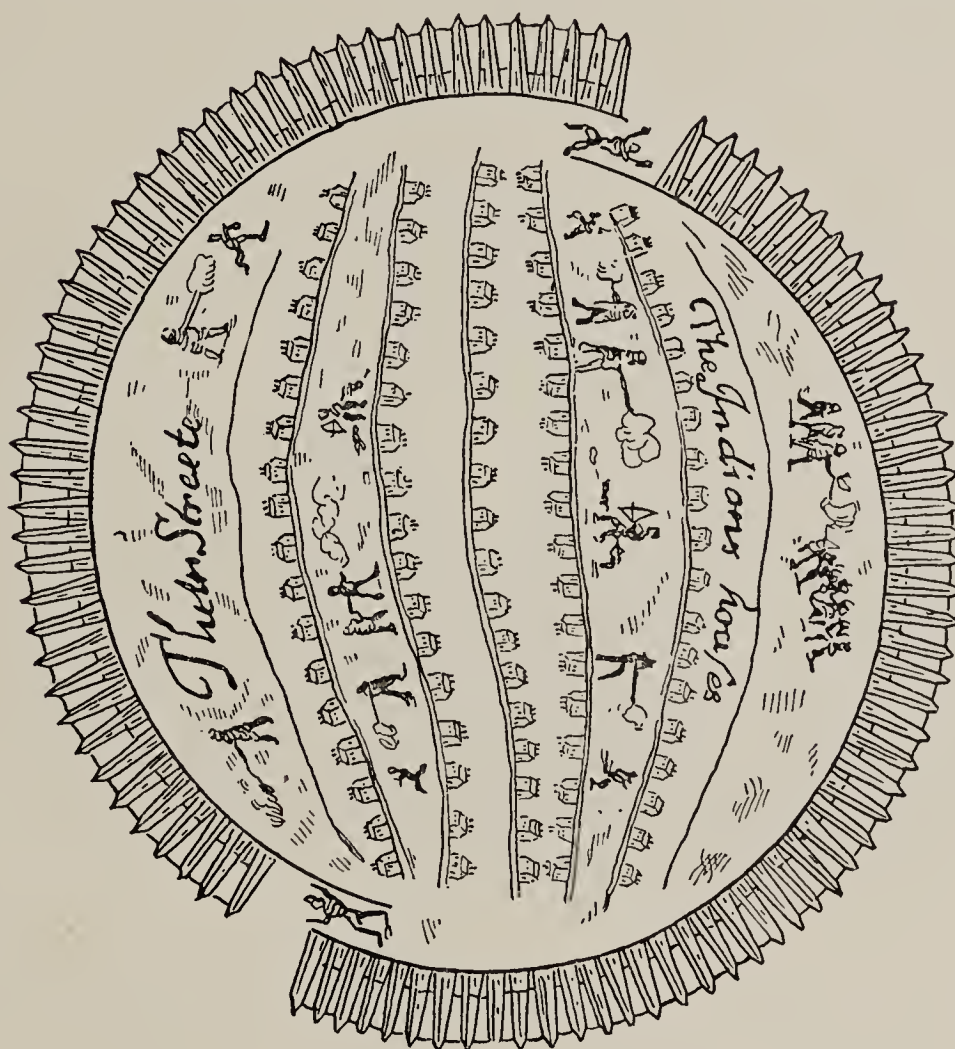 Their Streets
The Indians houſes